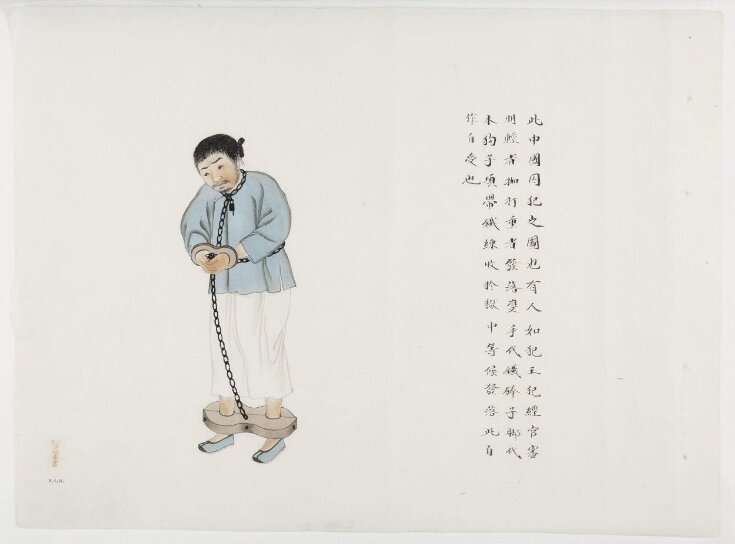 此中國囚犯之圖也有人如犯王犯經官審
明輕者枷打重者發落雙手代鐵砱子腳代
木狗子項帶鐵練收於獄中等候發落此自
作自受也